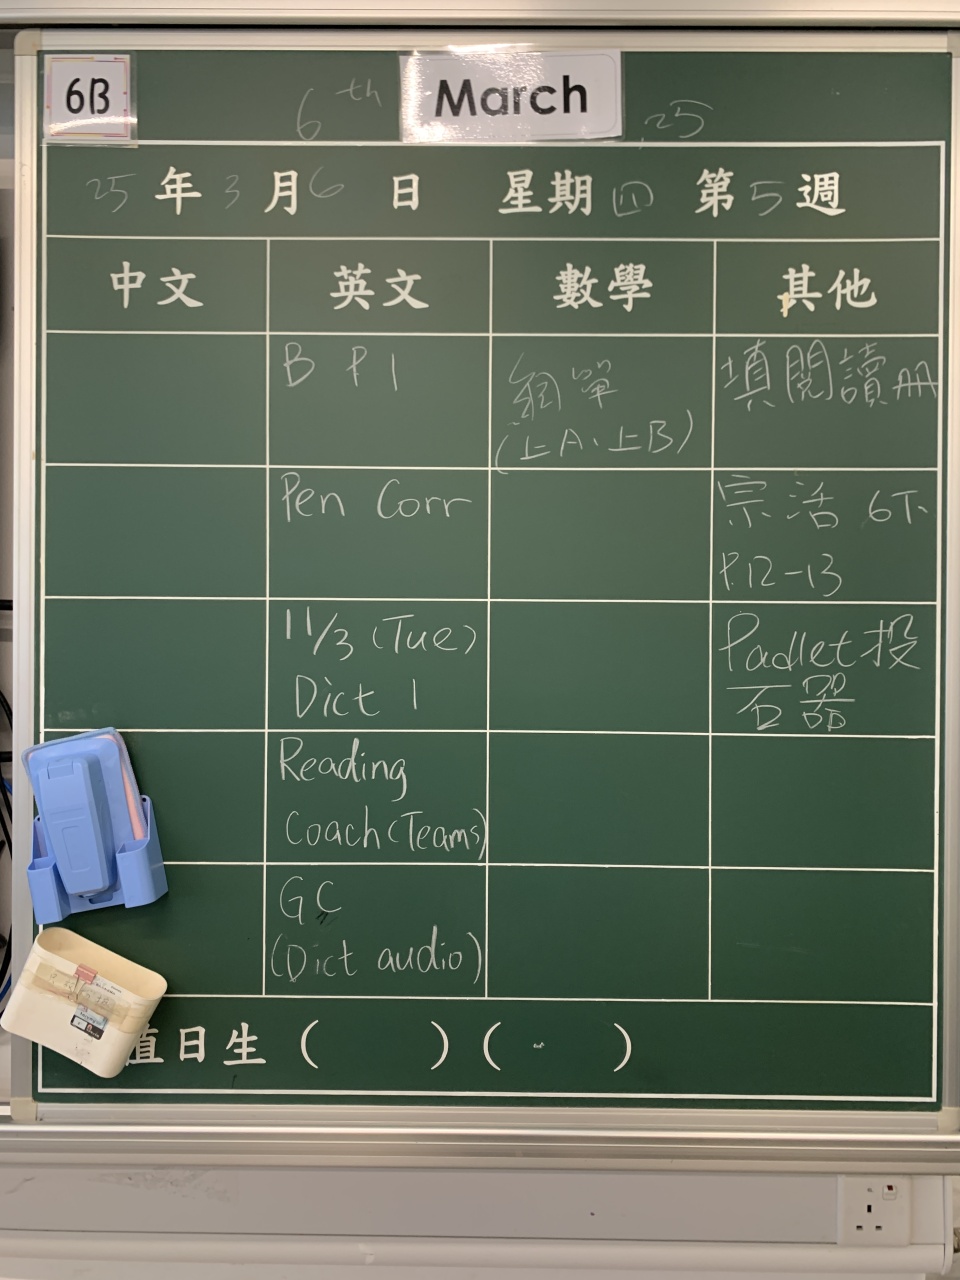 6B
6th March 25
25年3月6日 星期四 第5週
中文 英文 數學 其他
B P1
網單
(上A、上B)
填閱讀册
Pen Corr
宗活 6下
P.12-13
11/3 (Tue)
Dict 1
Padlet投
石器
Reading
Coach (Teams)
GC
(Dict audio)
值日生 ( ) ( )